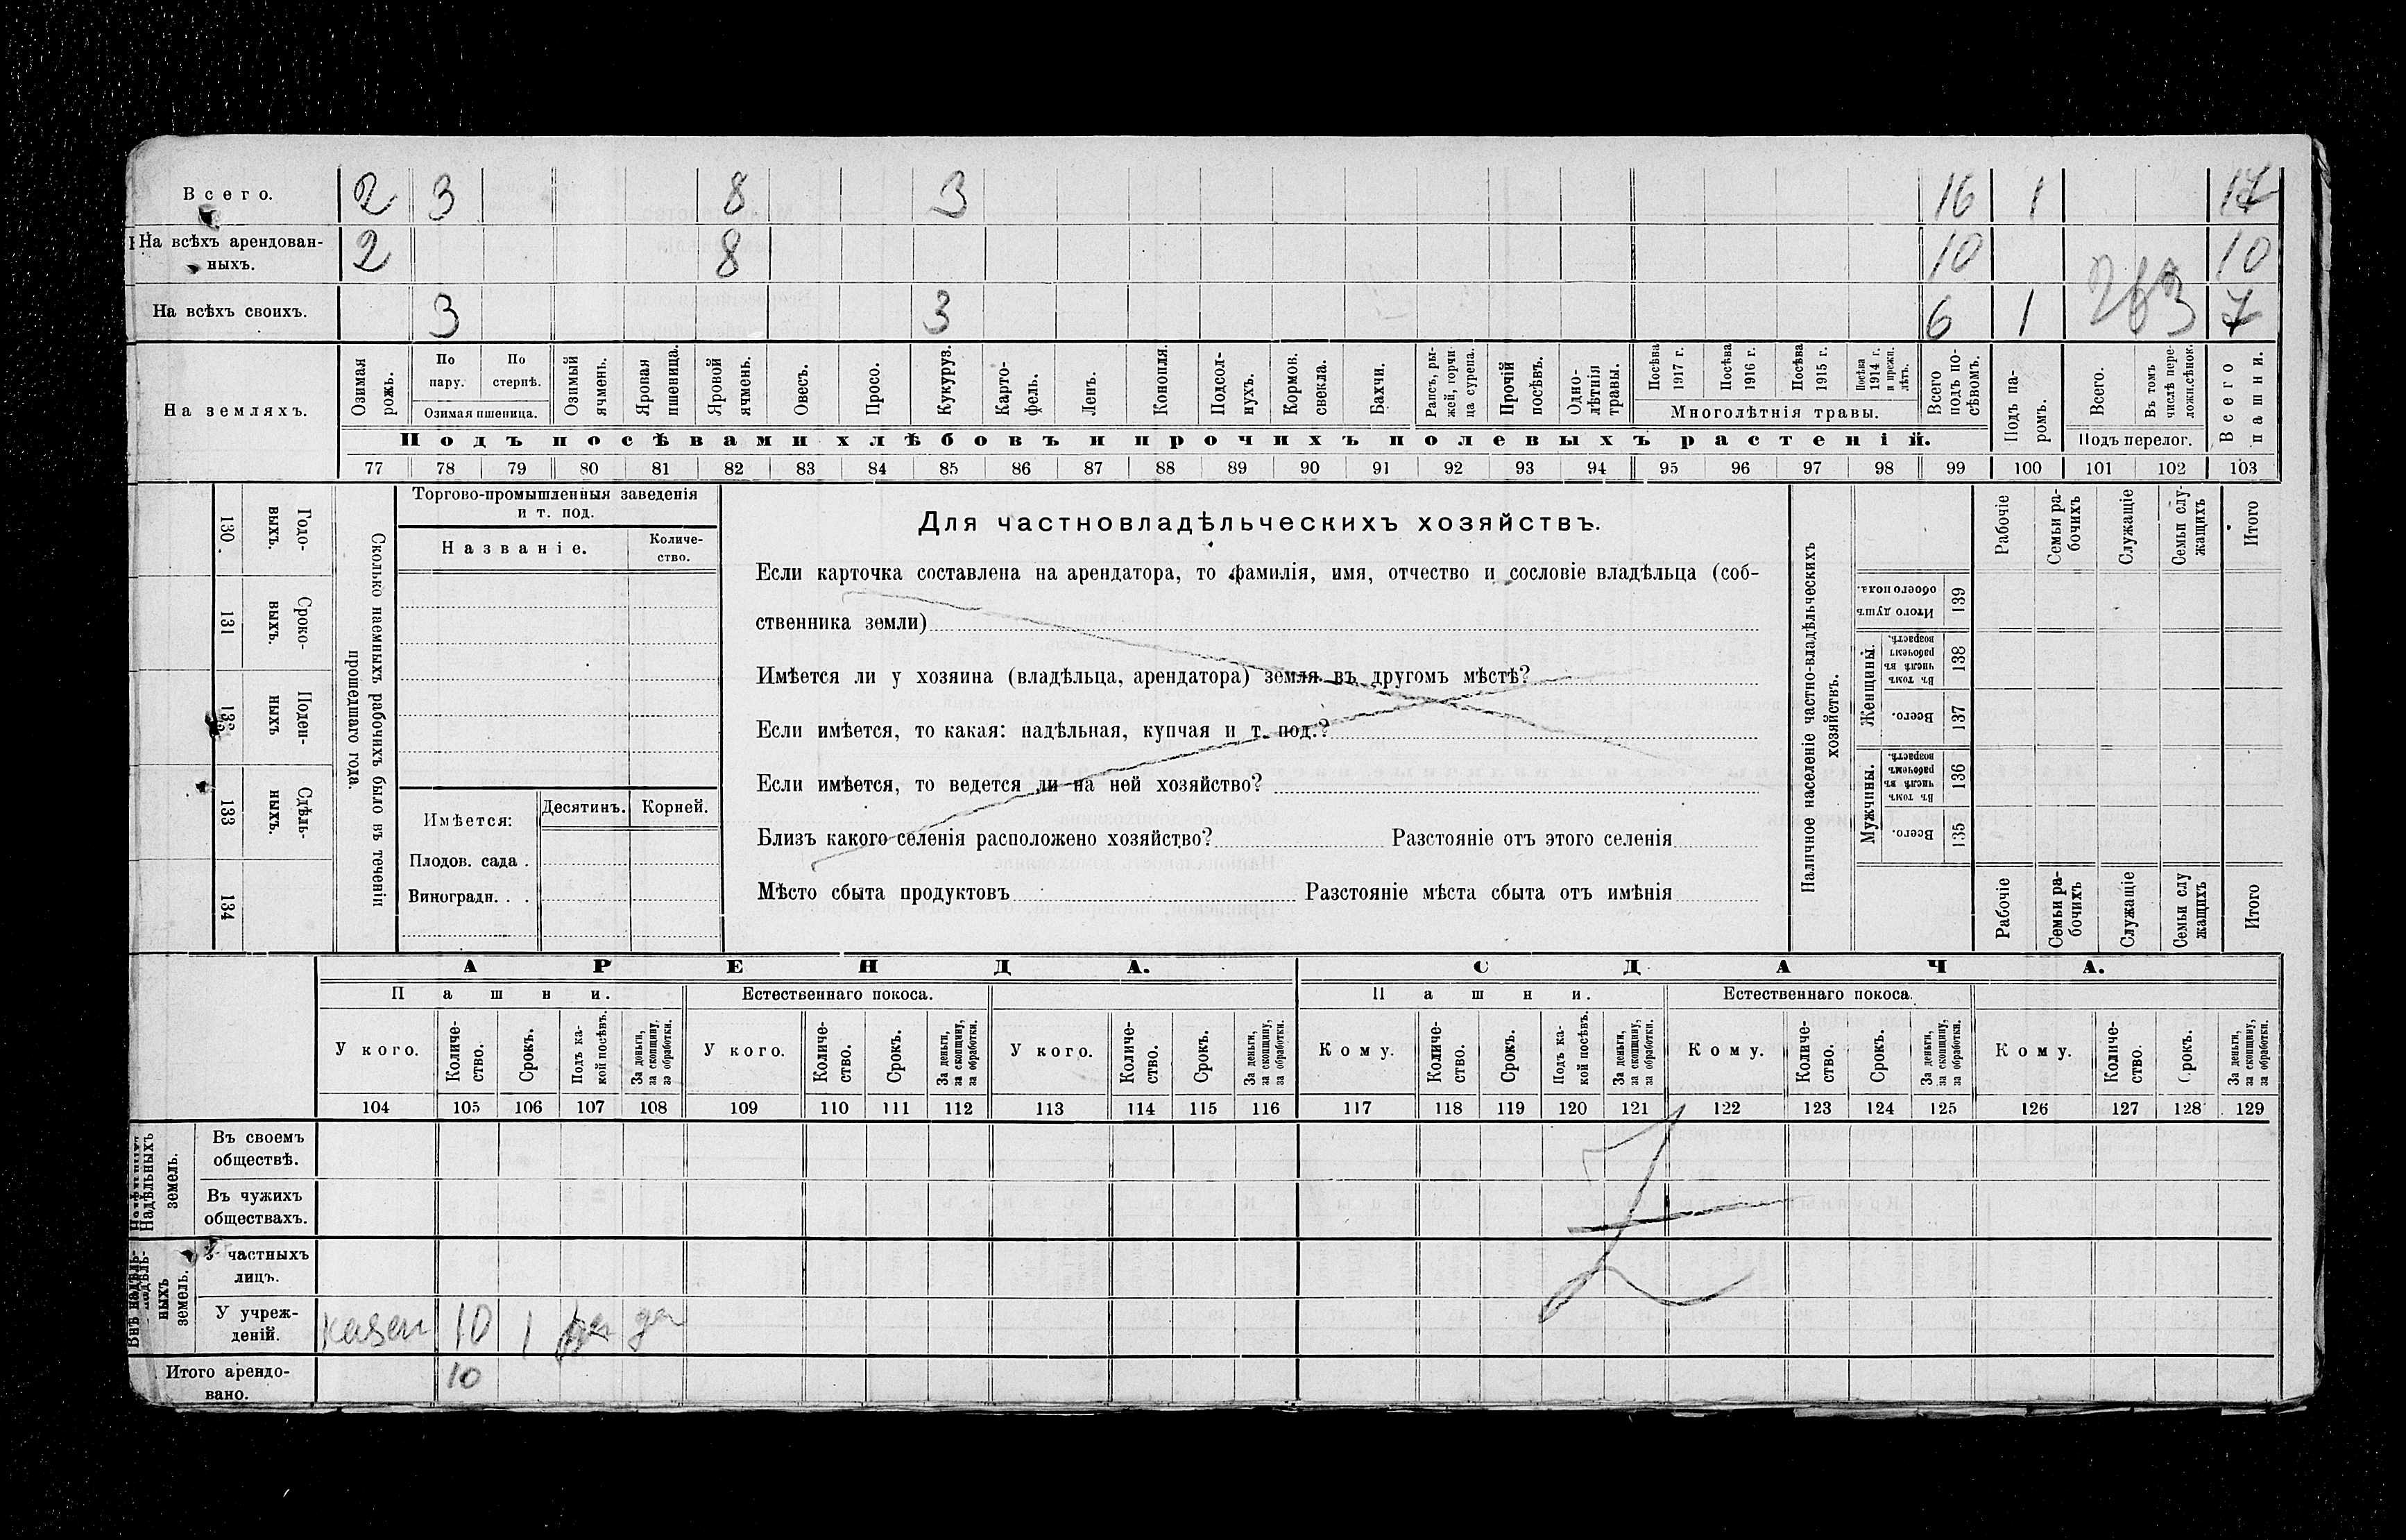 Всего. 2 3 8 3 16 1 17
На всѣхъ арендован-
ныхъ. 2 8 10 10
На всѣхъ своихъ. 3 3 6 1 7
На земляхъ.
Озимая рожь.
По пару.
По стернѣ.
Озимая пшеница.
Озимый ячмень.
Яровая пшеница.
Яровой ячмень.
Овесъ.
Просо.
Кукуруз.
Карто-
фель.
Ленъ.
Конопля.
Подсол-
нухъ.
Кормов. свекла.
Бахчи.
Рапсъ, ры-
жей, горчи
ца сурепа.
Прочій посѣвъ.
Одно-
лѣтнія
травы.
Посѣва 1917 г.
Посѣва 1916 г.
Посѣва 1915 г.
Посѣва 1914 г. и прежн. лѣтъ.
Многолѣтнія травы.
Всего подъ по-
сѣвомъ.
Подъ па-
ромъ.
Всего.
Въ томъ числѣ пере-
лож.сѣнок.
Подъ перелог.
Всего пашни.
Подъ посѣвами хлѣбовъ и прочихъ полевыхъ растеній.
77 78 79 80 81 82 83 84 85 86 87 88 89 90 91 92 93 94 95 96 97 98 99 100 101 102 103
130. Годо-
выхъ.
131 Сроко-
выхъ.
Поден-
ныхъ
133 Сдѣль-
ныхъ.
134
Сколько наемныхъ рабочихъ было въ теченіи
прошедшаго года.
Торгово-промышленныя заведенія
и т. под.
Названіе.
Количе-
ство.
Имѣется:
Десятинъ.
Корней.
Плодов. сада .
Виноградн. . .
Для частновладѣльческихъ хозяйствъ.
Если карточка составлена на арендатора, то фамилія, имя, отчество и сословіе владѣльца (соб-
ственника земли)
Имѣется ли у хозяина (владѣльца, арендатора) земля въ другомъ мѣстѣ?
Если имѣется, то какая: надѣльная, купчая и т. под.?
Если имѣется, то ведется ли на ней хозяйство?
Близъ какого селенія расположено хозяйство? Разстояніе отъ этого селенія
Мѣсто сбыта продуктовъ Разстояніе мѣста сбыта отъ имѣнія
Наличное населеніе частно-владѣльческихъ
хозяйствъ.
Рабочіе
Семьи ра-
бочихъ
Служащіе
Семьи слу-
жащихъ
Итого
Итого душъ обоего пола. 139
Женщины.
Въ томъ числѣ въ рабочемъ возрастѣ. 138
Всего. 137
Мужчины.
Въ томъ числѣ въ рабочемъ возрастѣ. 136
Всего. 135
Рабочіе
Семьи ра-
бочихъ
Служащіе
Семьи слу
жащихъ
Итого
АРЕНДА. СДАЧА.
Пашни. Естественнаго покоса. Пашни. Естественнаго покоса.
У кого. Количе-
ство. Срокъ. Подъ ка-
кой посѣвъ. За деньги, за скопщину, за обработки.
У кого. Количе-
ство. Срокъ. За деньги, за скопщину, за обработки.
У кого. Количе-
ство. Срокъ. За деньги, за скопщину, за обработки.
Кому. Количе-
ство. Срокъ. Подъ ка-
кой посѣвъ. За деньги, за скопщину, за обработки.
Кому. Количе-
ство. Срокъ. За деньги, за скопщину, за обработки.
Кому. Количе-
ство. Срокъ. За деньги, за скопщину, за обработки.
104 105 106 107 108 109 110 111 112 113 114 115 116 117 118 119 120 121 122 123 124 125 126 127 128 129
Надѣльныхъ
земель.
Въ своемъ
обществѣ.
Въ чужихъ
обществахъ.
Внѣ надѣль-
ныхъ
земель.
У частныхъ
лицъ.
У учреж-
деній. казен 10 1
Итого арендо-
вано. 10